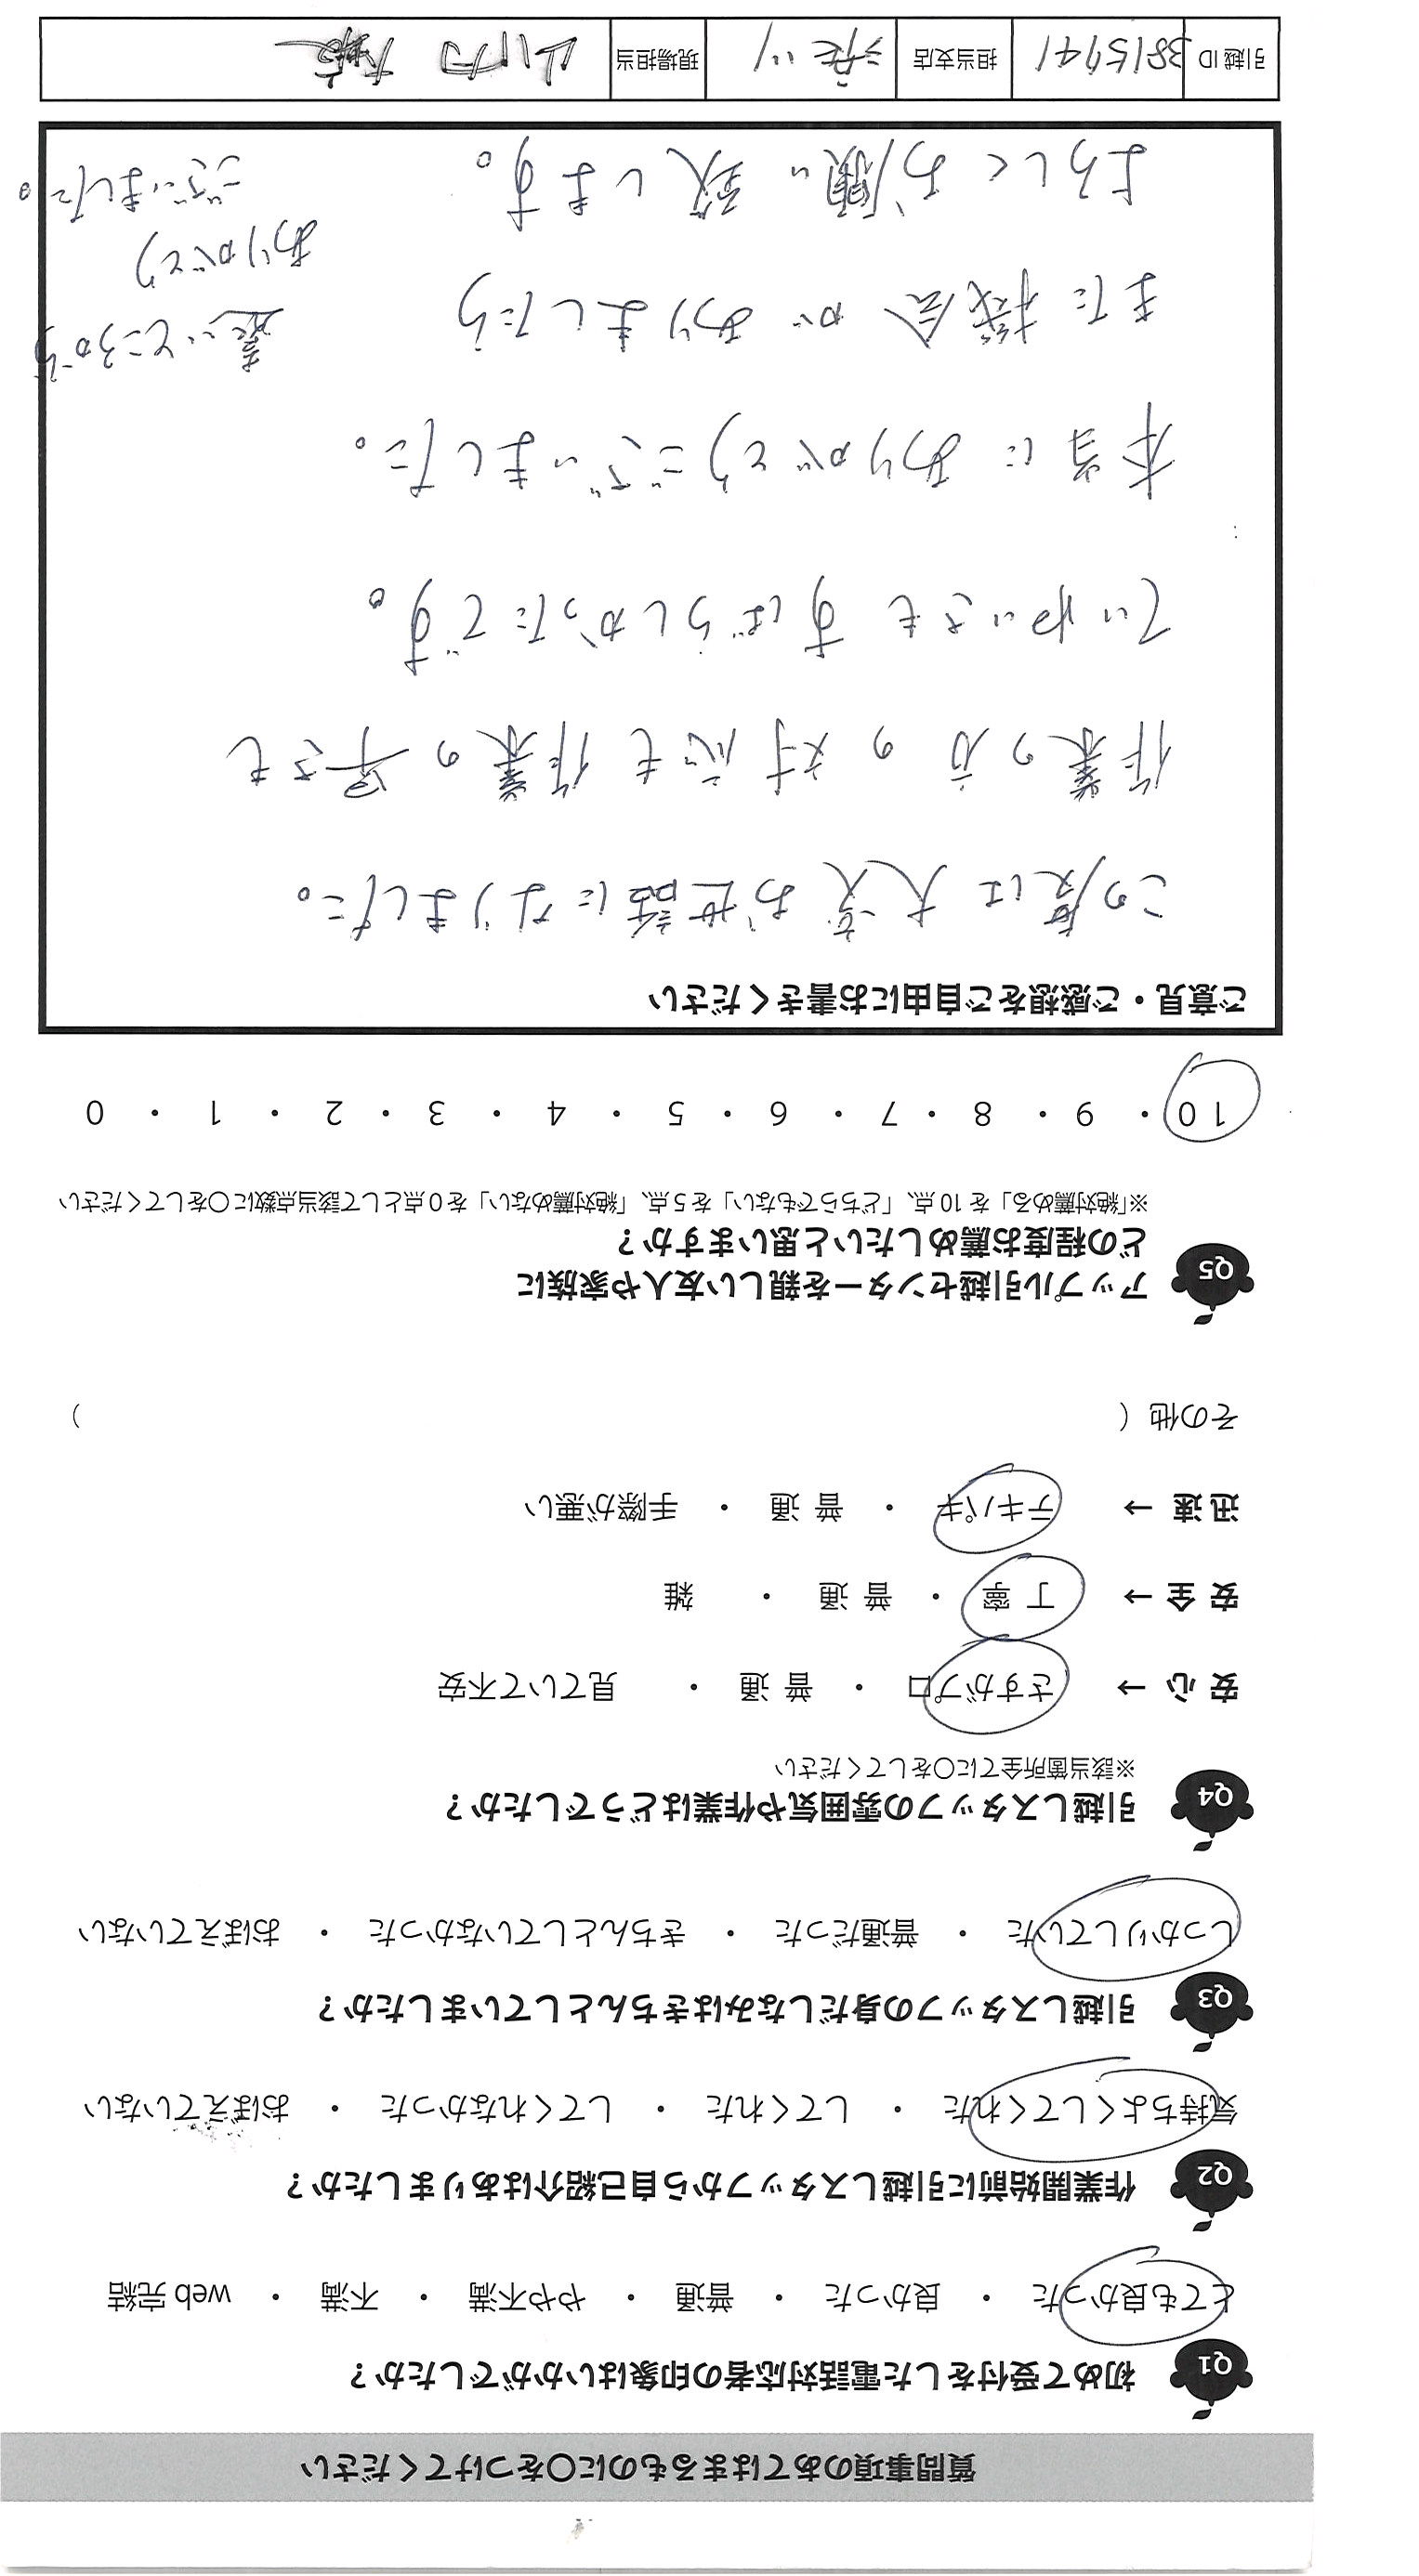 質問事項のあてはまるものに〇をつけてください
Q1 初めて受付をした電話対応者の印象はいかがでしたか？
とても良かった ・ 良かった ・ 普通 ・ やや不満 ・ 不満 ・ web 完結
Q2 作業開始前に引越しスタッフから自己紹介はありましたか？
気持ちよくしてくれた ・ してくれた ・ してくれなかった ・ おぼえていない
Q3 引越しスタッフの身だしなみはきちんとしていましたか？
しっかりしていた ・ 普通だった ・ きちんとしていなかった ・ おぼえていない
Q4 引越しスタッフの雰囲気や作業はどうでしたか？
※該当箇所全てに〇をしてください
安 心 → さすがプロ ・ 普 通 ・ 見ていて不安
安 全 → 丁 寧 ・ 普 通 ・ 雑
迅 速 → テキパキ ・ 普 通 ・ 手際が悪い
その他（ ）
Q5 アップル引越センターを親しい友人や家族に
どの程度お薦めしたいと思いますか？
※「絶対薦める」を 10 点、「どちらでもない」を 5 点、「絶対薦めない」を 0 点として該当点数に〇をしてください
10 ・ 9 ・ 8 ・ 7 ・ 6 ・ 5 ・ 4 ・ 3 ・ 2 ・ 1 ・ 0
ご意見・ご感想をご自由にお書きください
この度は大変お世話になりました。
作業の方の対応も作業の早さも
ていねいさもすばらしかったです。
本当にありがとうございました。
また機会がありましたら
よろしくお願い致します。
遠いところから
ありがとう
ございました。
引越 ID 担当支店 現場担当 山内